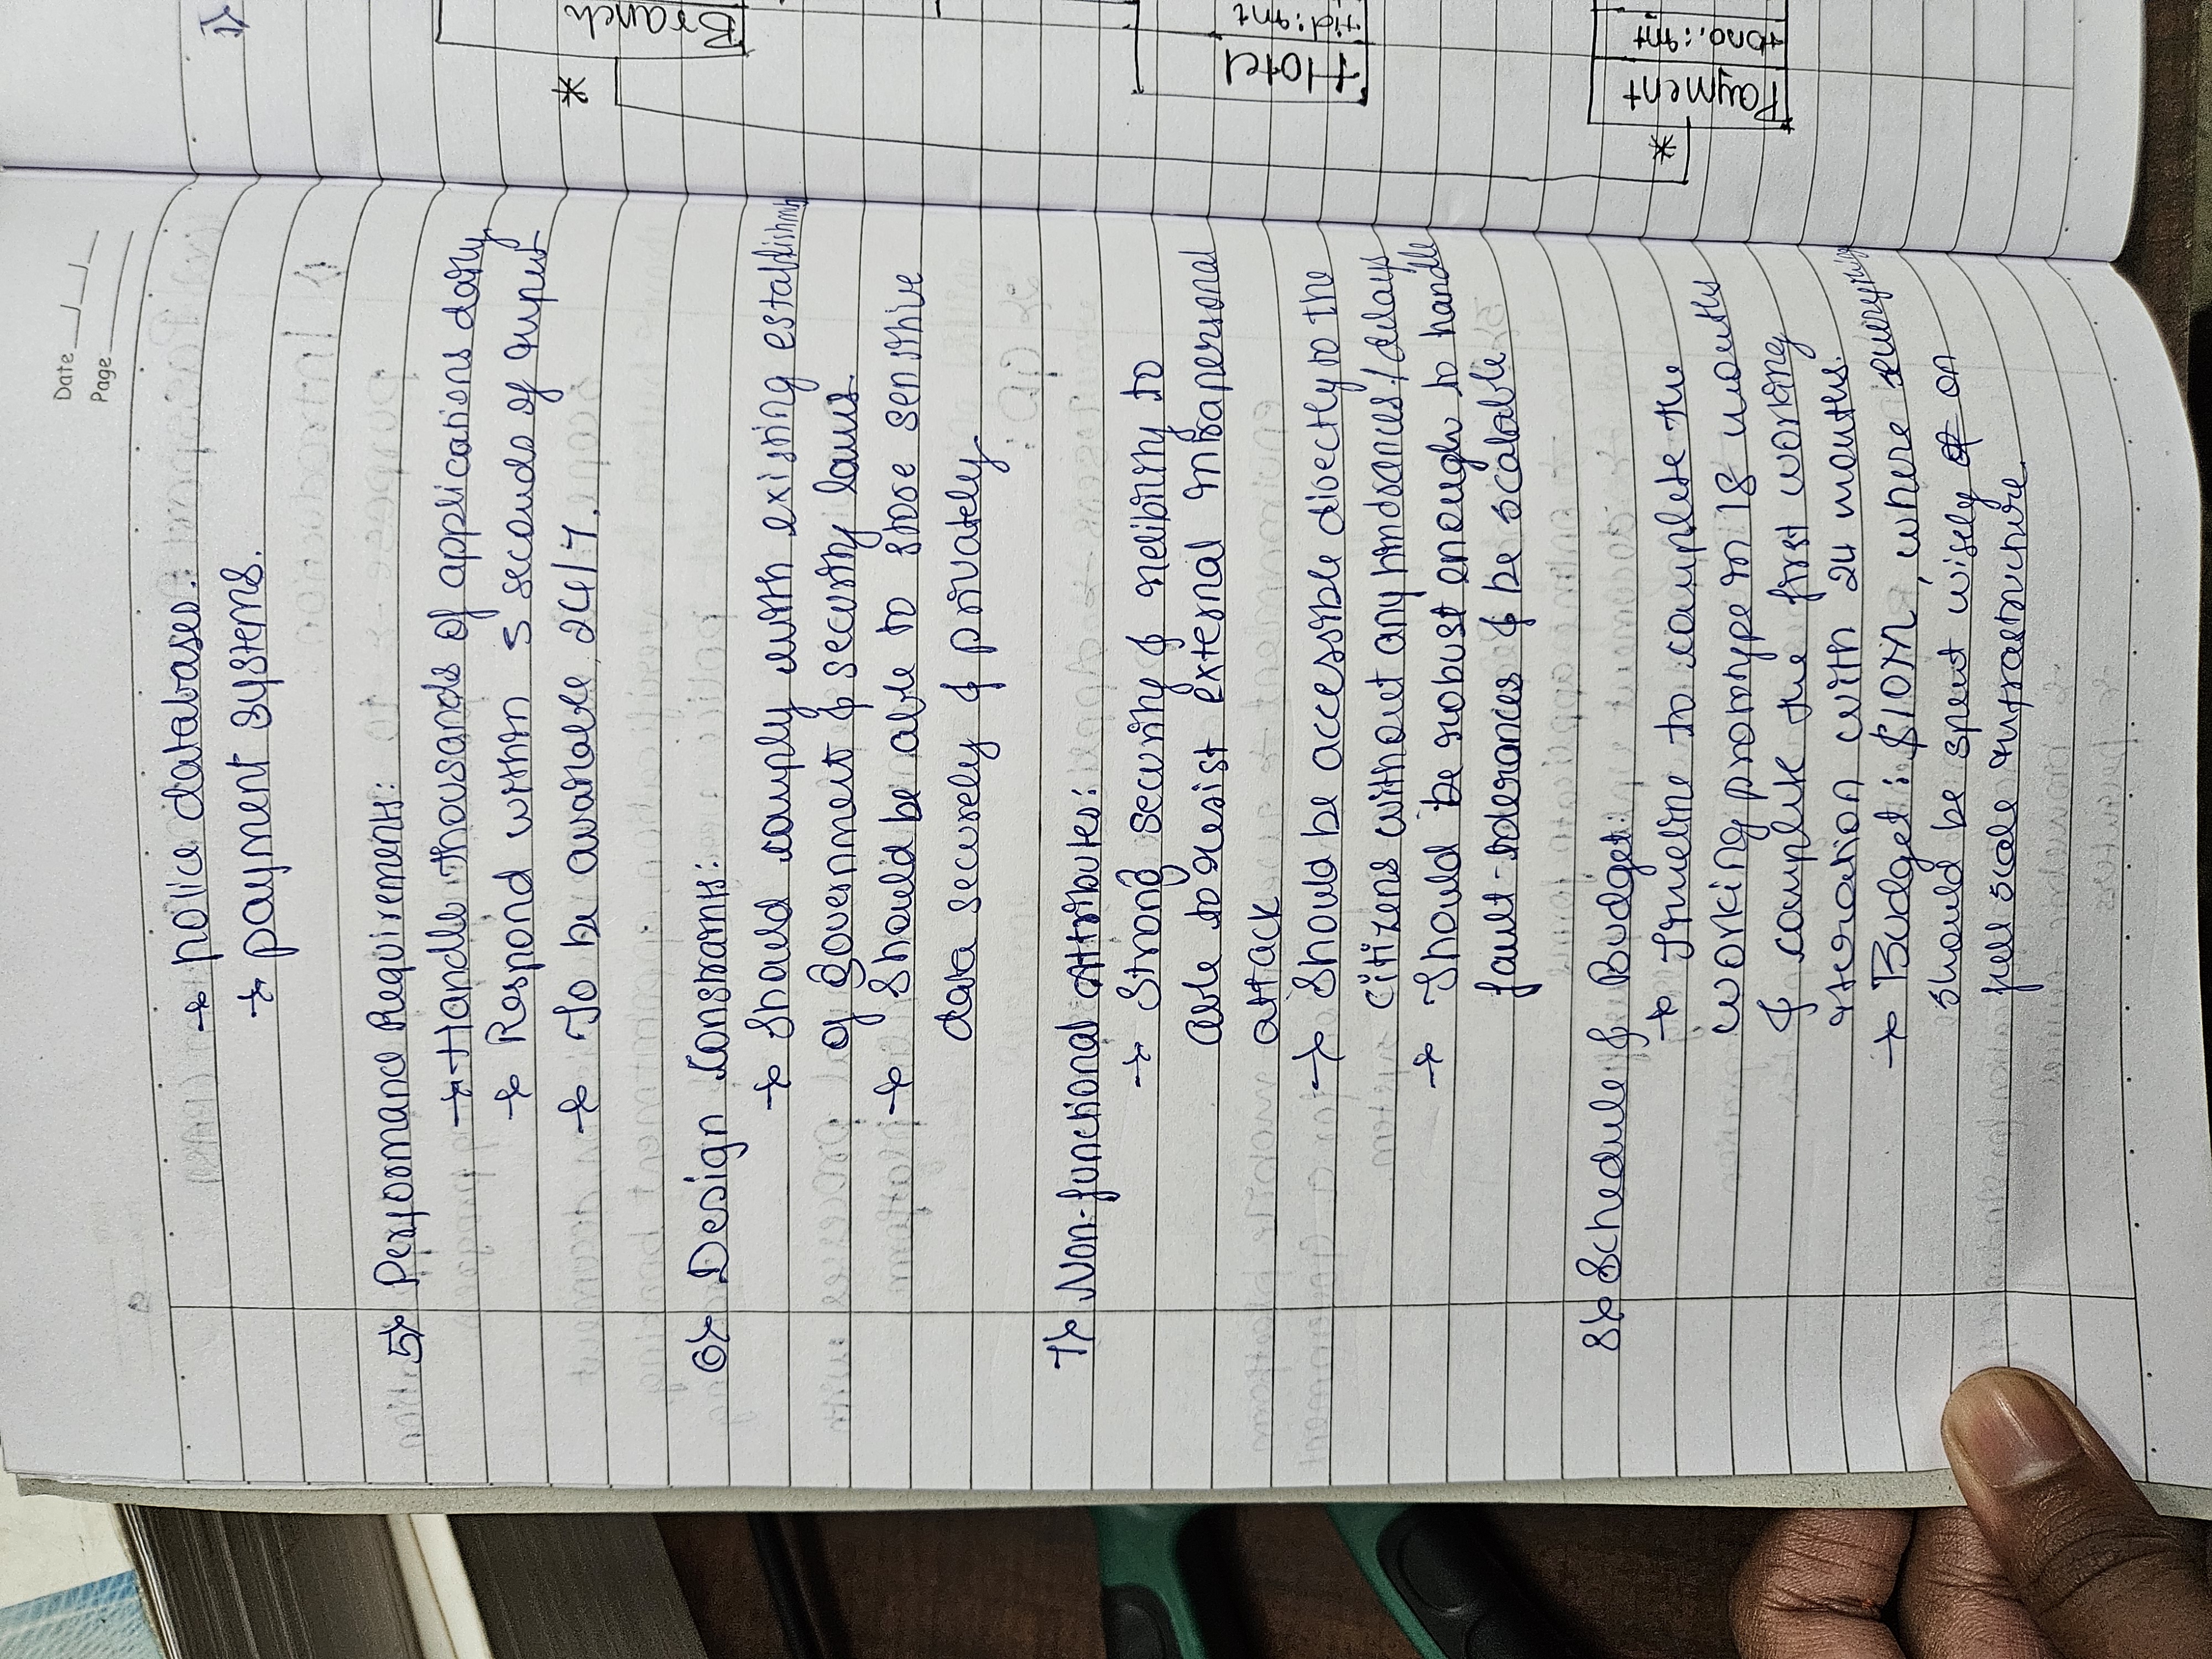 Date __/__/__
Page
→ police databases.
→ payment systems.
5) Performance Requirements:
→ Handle thousands of applications daily
→ Respond within 5 seconds of input
→ To be available 24/7.
6) Design Constraints:
→ Should comply with existing establishment
of government & security laws.
→ Should be able to store sensitive
data securely & privately
7) Non-functional Attributes:
→ Strong security & relibility to
able to resist external intrapersonal
attack
→ Should be accessible directly to the
citizens without any hindrances / delays
→ Should be robust enough to handle
fault-tolerances & be scalable
8) Schedule & Budget:
→ Timeline to complete the
working prototype in 18 months
& complete the first working
iteration with 24 months.
→ Budget: $10M, where everything
should be spent wisely on
full scale infrastructure.
1)
*
Branch
Hotel
hid: int
*
Payment
tno.: int